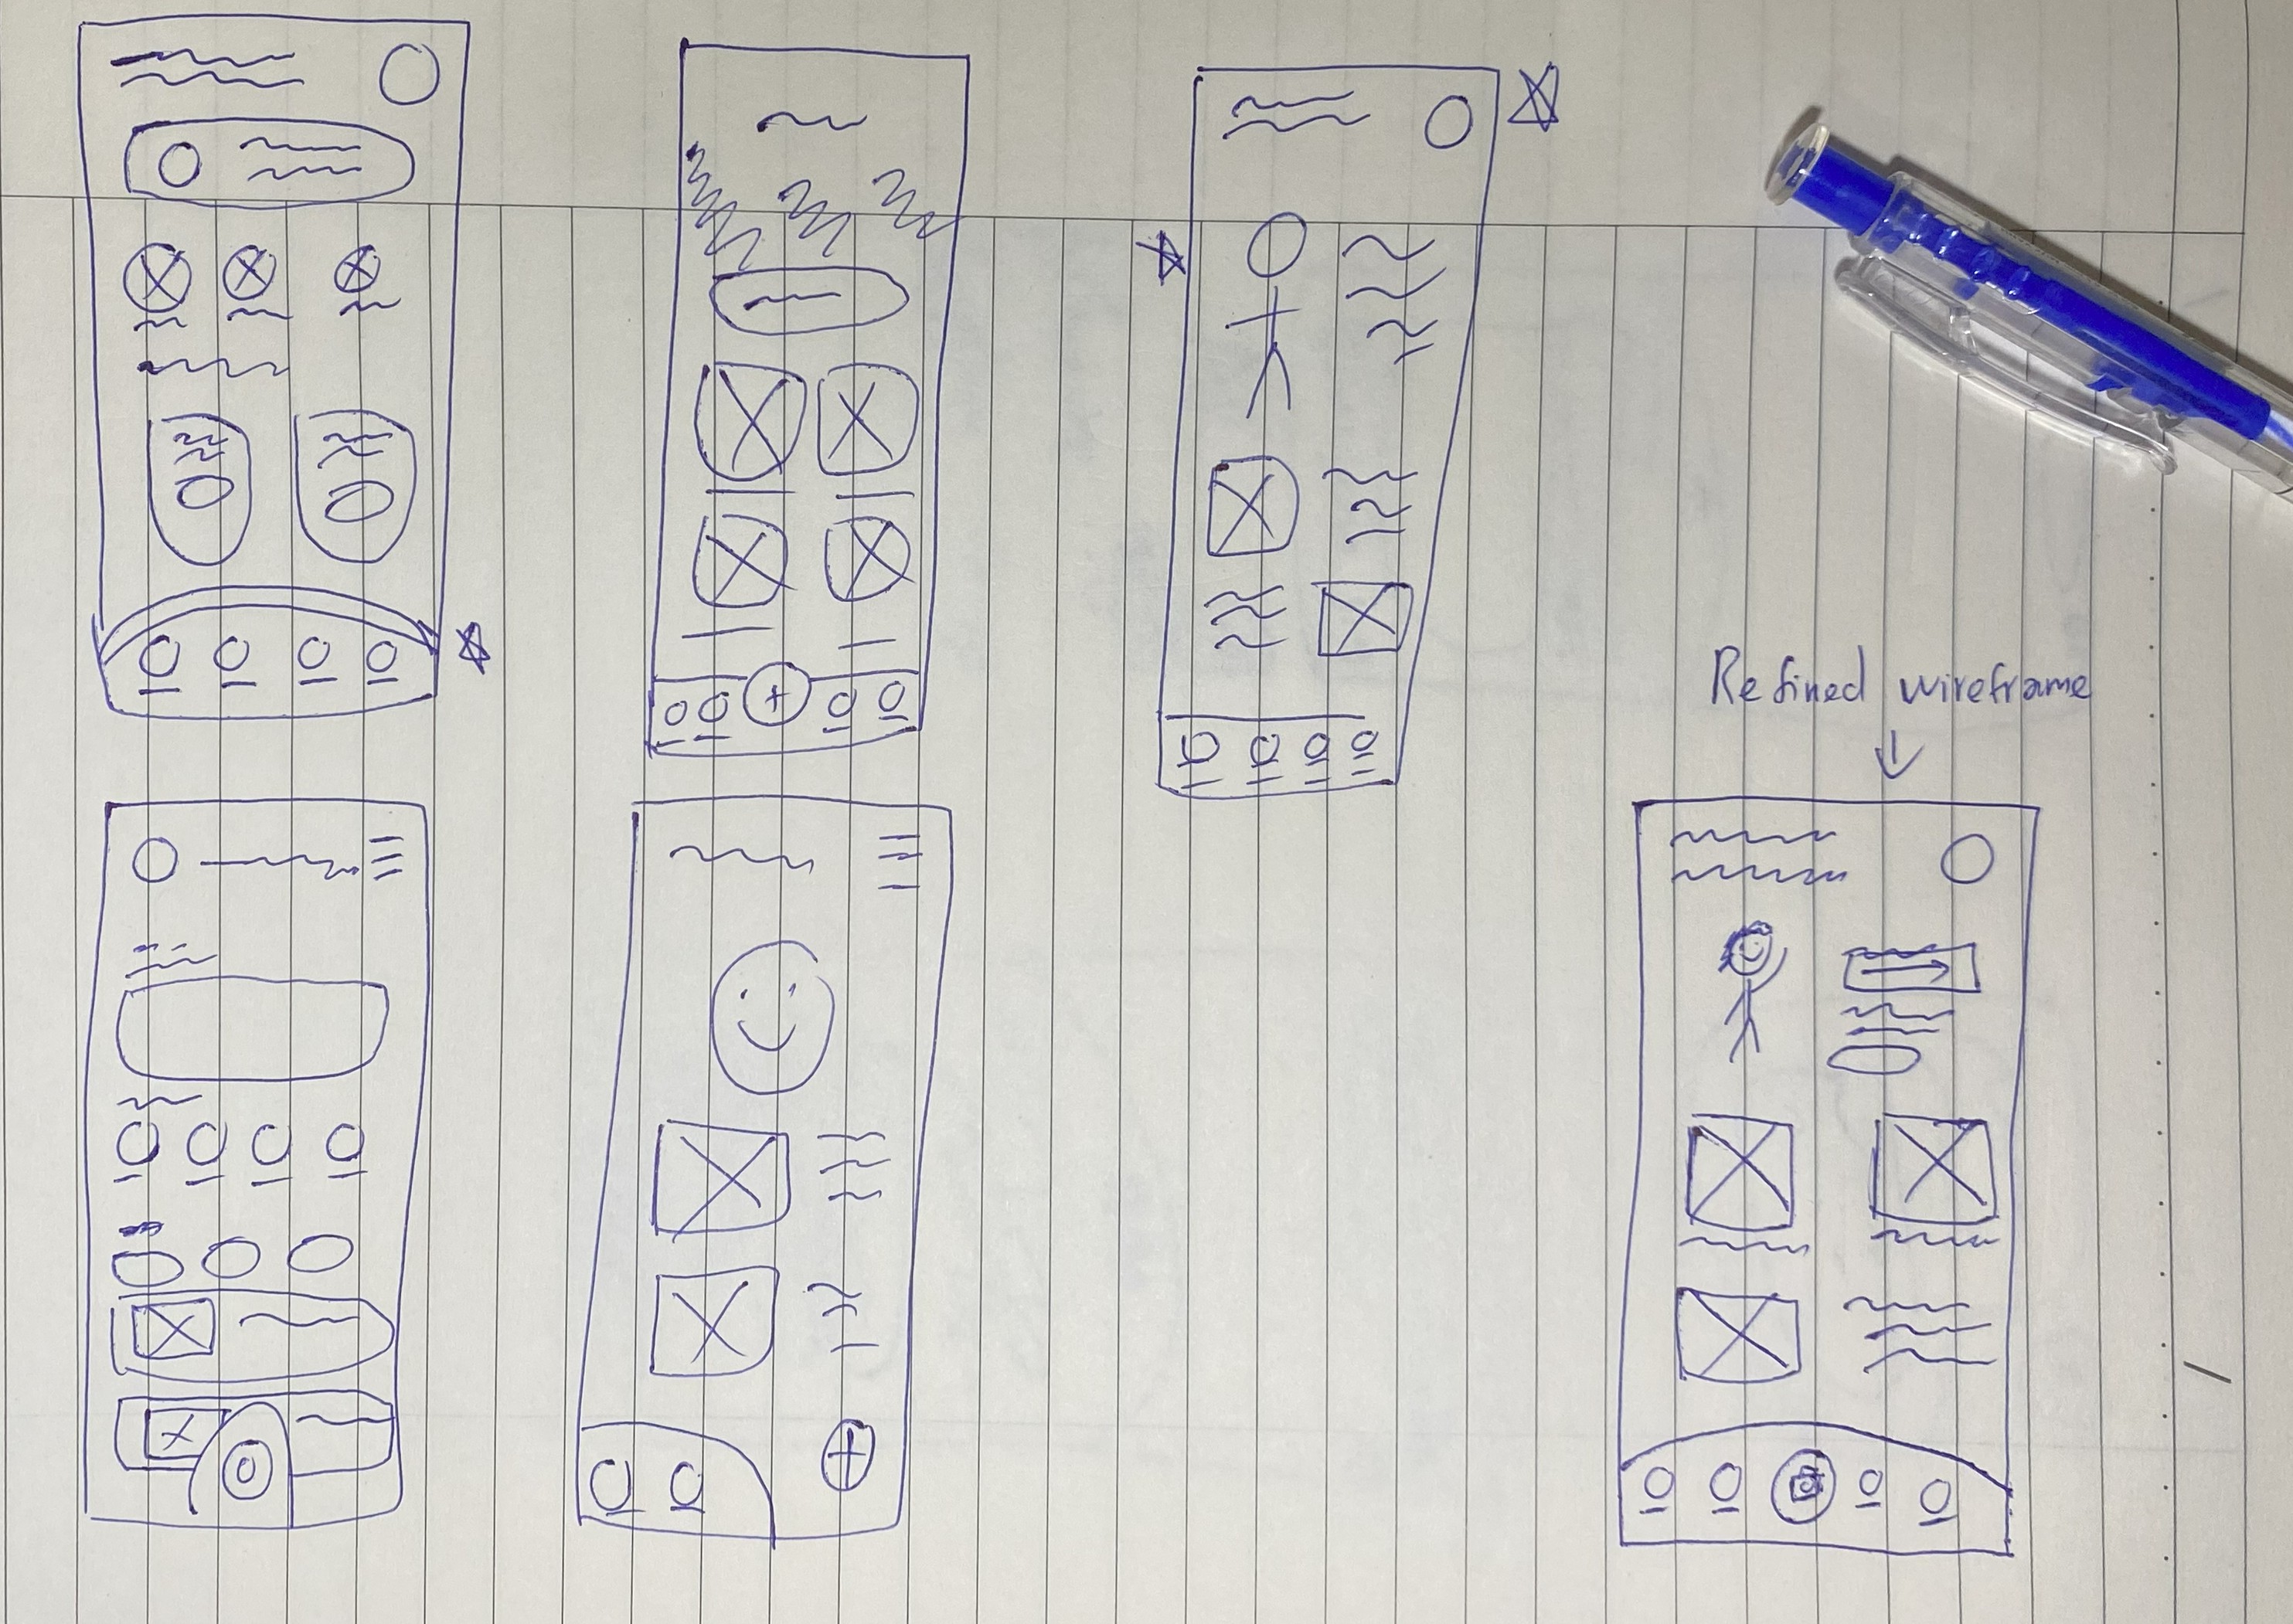 Refined wireframe